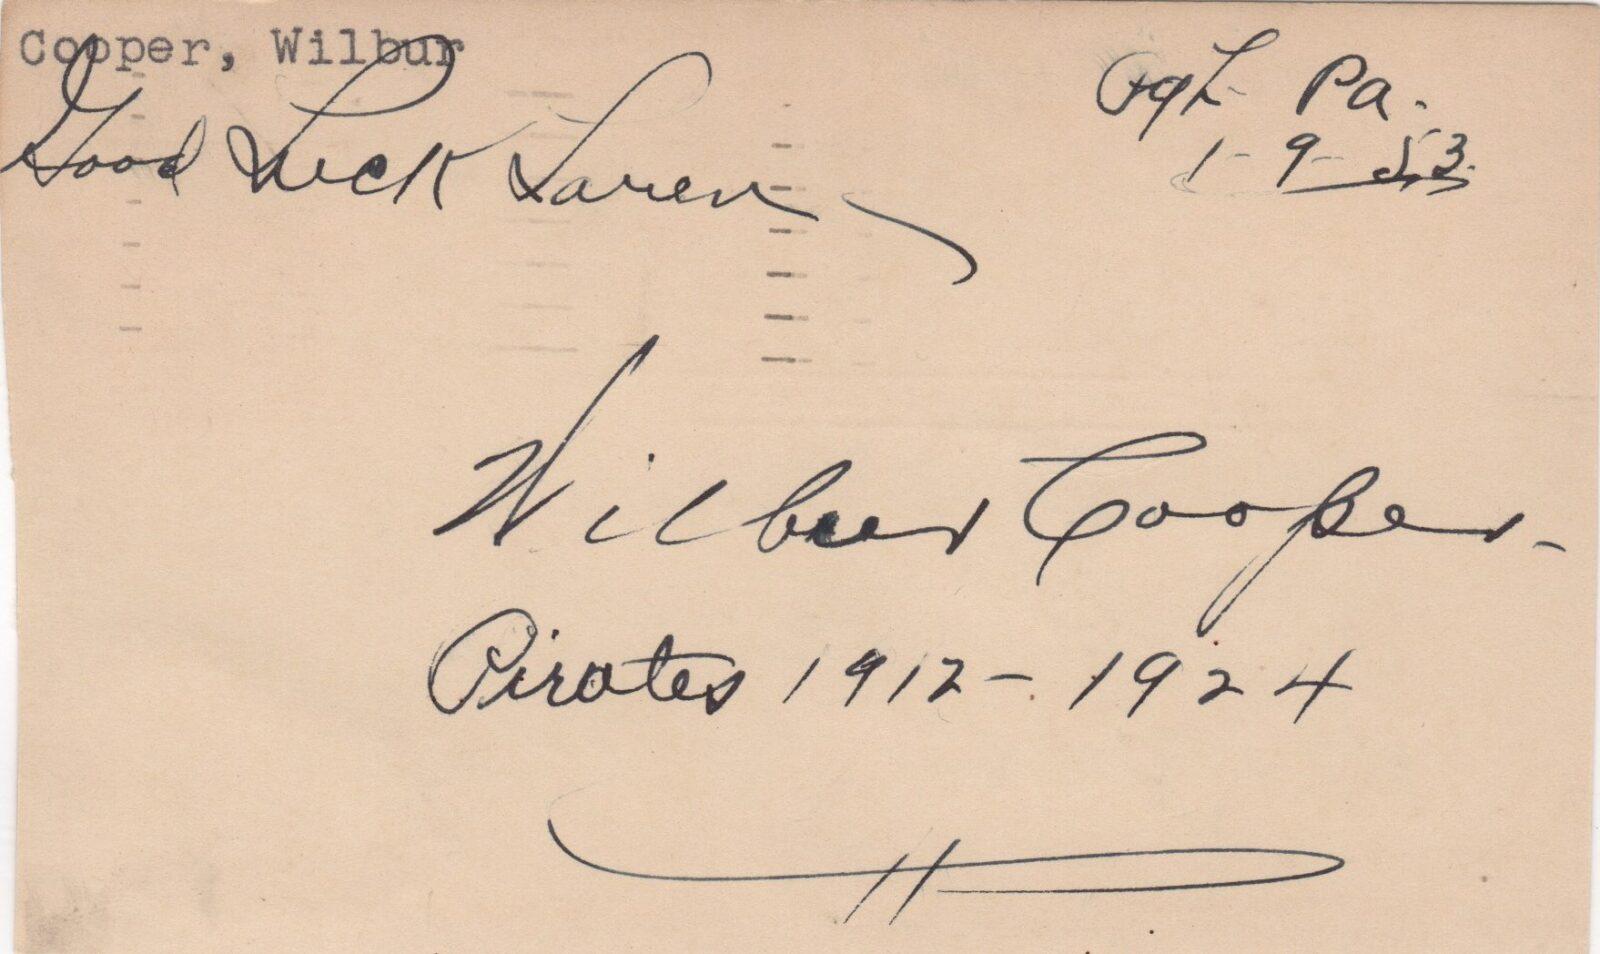 Cooper, Wilbur
Pgh Pa.
1-9-53.
Good Luck Loren
Wilbur Cooper.
Pirates 1912-1924